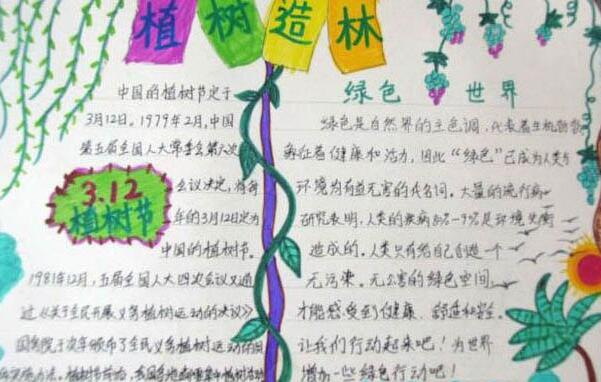 植树造林
中国的植树节定于
3月12日。1979年2月,中国
第五届全国人大常委会第六次
会议决定,将每
年的3月12日定为
中国的植树节。
3.12
植树节
1981年12月,五届全国人大四次会议又通
过《关于全民开展义务植树运动的决议》
国务院于次年颁布了全民义务植树运动的
绿色世界
绿色是自然界的主色调,代表着生机勃勃
象征着健康和活力,因此“绿色”已成为人类与
环境为有益无害的代名词。大量的流行病
研究表明,人类的疾病70%-90%是环境失衡
造成的。人类只有给自己创造一个
无污染。无公害的绿色空间
才能感受到健康、舒适和
让我们行动起来吧!为世界
增加一些绿色行动吧!